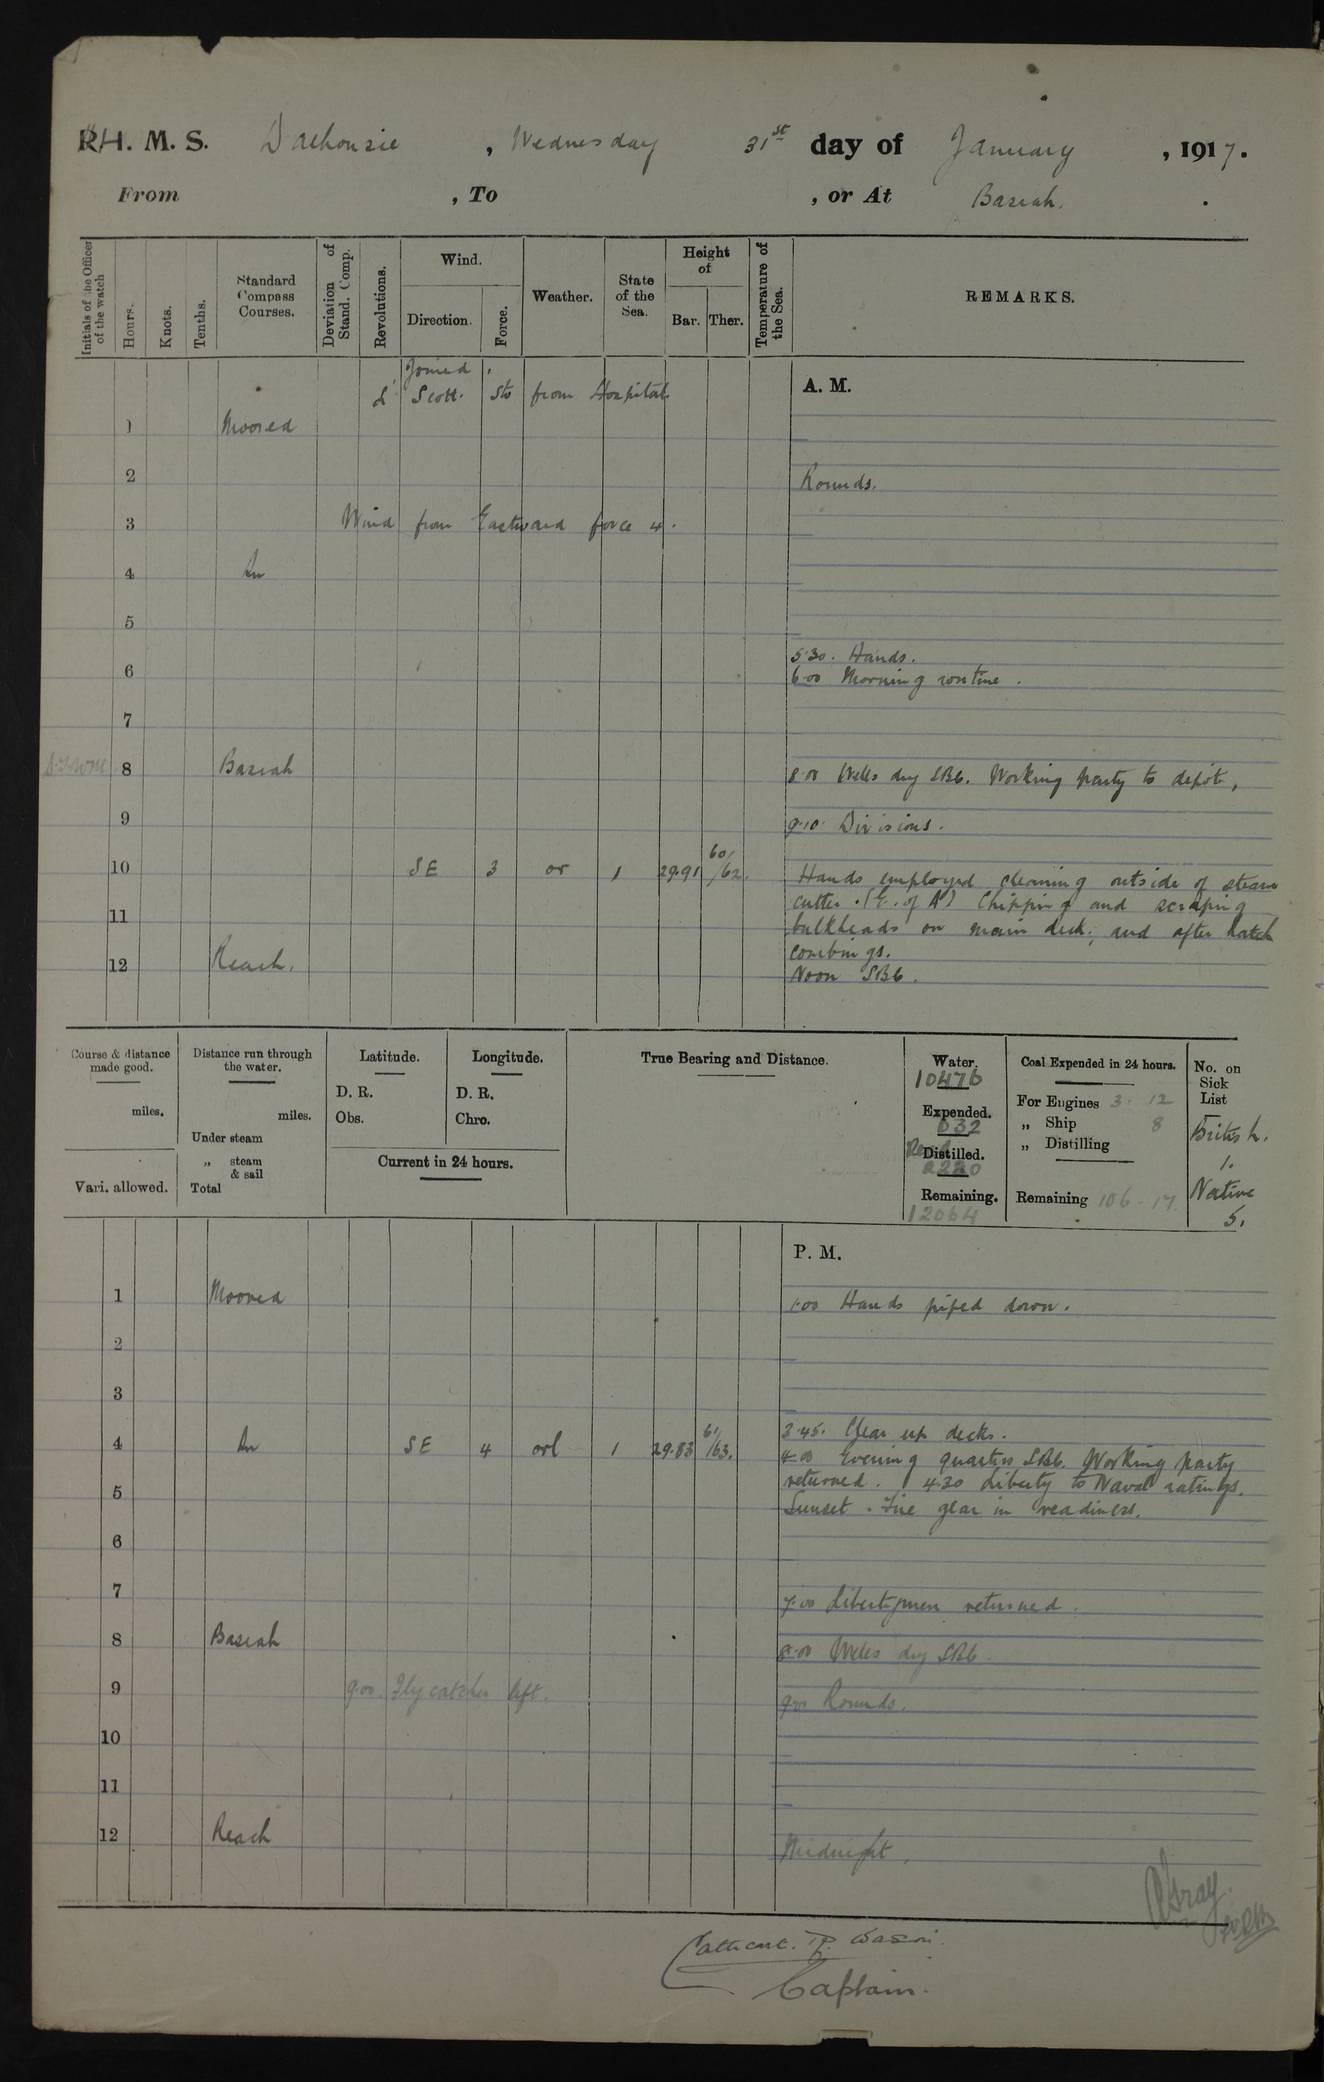 R.H. M. S. Dalhousie, Wednesday 31st day of January, 1917.
From , To , or At Basrah.
Initials of the Officer of the watch
Hours.
Knots.
Tenths.
Standard Compass Courses.
Deviation of Stand. Comp.
Revolutions.
Wind.
Direction.
Force.
Weather.
State of the Sea.
Height of
Bar. Ther.
Temperature of the Sea.
REMARKS.
Joined
Scott. Sto from Hospital
A. M.
1 Moored
2 Rounds.
3 Wind from Eastward force 4.
4 In
5
5.30. Hands.
6 6.00 Morning routine.
7
8 Basrah 8.00 Wells dry SBC. Working party to depôt,
9 9.10. Divisions.
10 SE 3 or 1 29.91 60/62. Hands employed cleaning outside of steam
cutter. (E. of A) Chipping and scraping
11 bulkheads on main deck, and after hatch
combings.
12 Reach. Noon SBC.
Course & distance made good.
miles.
Vari. allowed.
Distance run through the water.
miles.
Under steam
„ steam & sail
Total
Latitude.
D. R.
Obs.
Longitude.
D. R.
Chro.
Current in 24 hours.
True Bearing and Distance.
Water.
10476
Expended.
632
Distilled.
2220
Remaining.
12064
Coal Expended in 24 hours.
For Engines 3. 12
„ Ship 8
„ Distilling
Remaining 106 - 17
No. on Sick List
British.
1.
Native
5.
P. M.
1 Moored 1.00 Hands piped down.
2
3
3.45. Clear up decks.
4 In SE 4 orl 1 29.83 61/63. 4.00 Evening quarters SBC. Working party
returned. 4.30 Liberty to Naval ratings.
5 Sunset. Fire gear in readiness.
6
7 7.00 Libertymen returned.
8 Basrah 8.00 Wells dry SBC
9 9.00. Flycatcher left. 9.00 Rounds.
10
11
12 Reach Midnight,
Gray
Cathcart. R. Wason.
Captain.